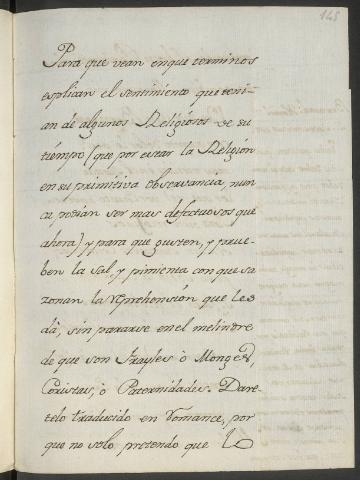 145
Para que vean en que terminos
explican el sentimiento que teni-
an de algunos Religiosos de su
tiempo (que por estar la Religion
en su primitiva observancia, nun
ca podian ser mas defectuosos que
ahora) y para que gusten, y prue-
ben la sal, y pimienta con que sa
zonan la reprehension que les
dà, sin pararse en el melindre
de que son Frayles ò Monges,
Coristas, ò Paternidades. Dare
telo traducido en Romance, por
que no solo pretendo que